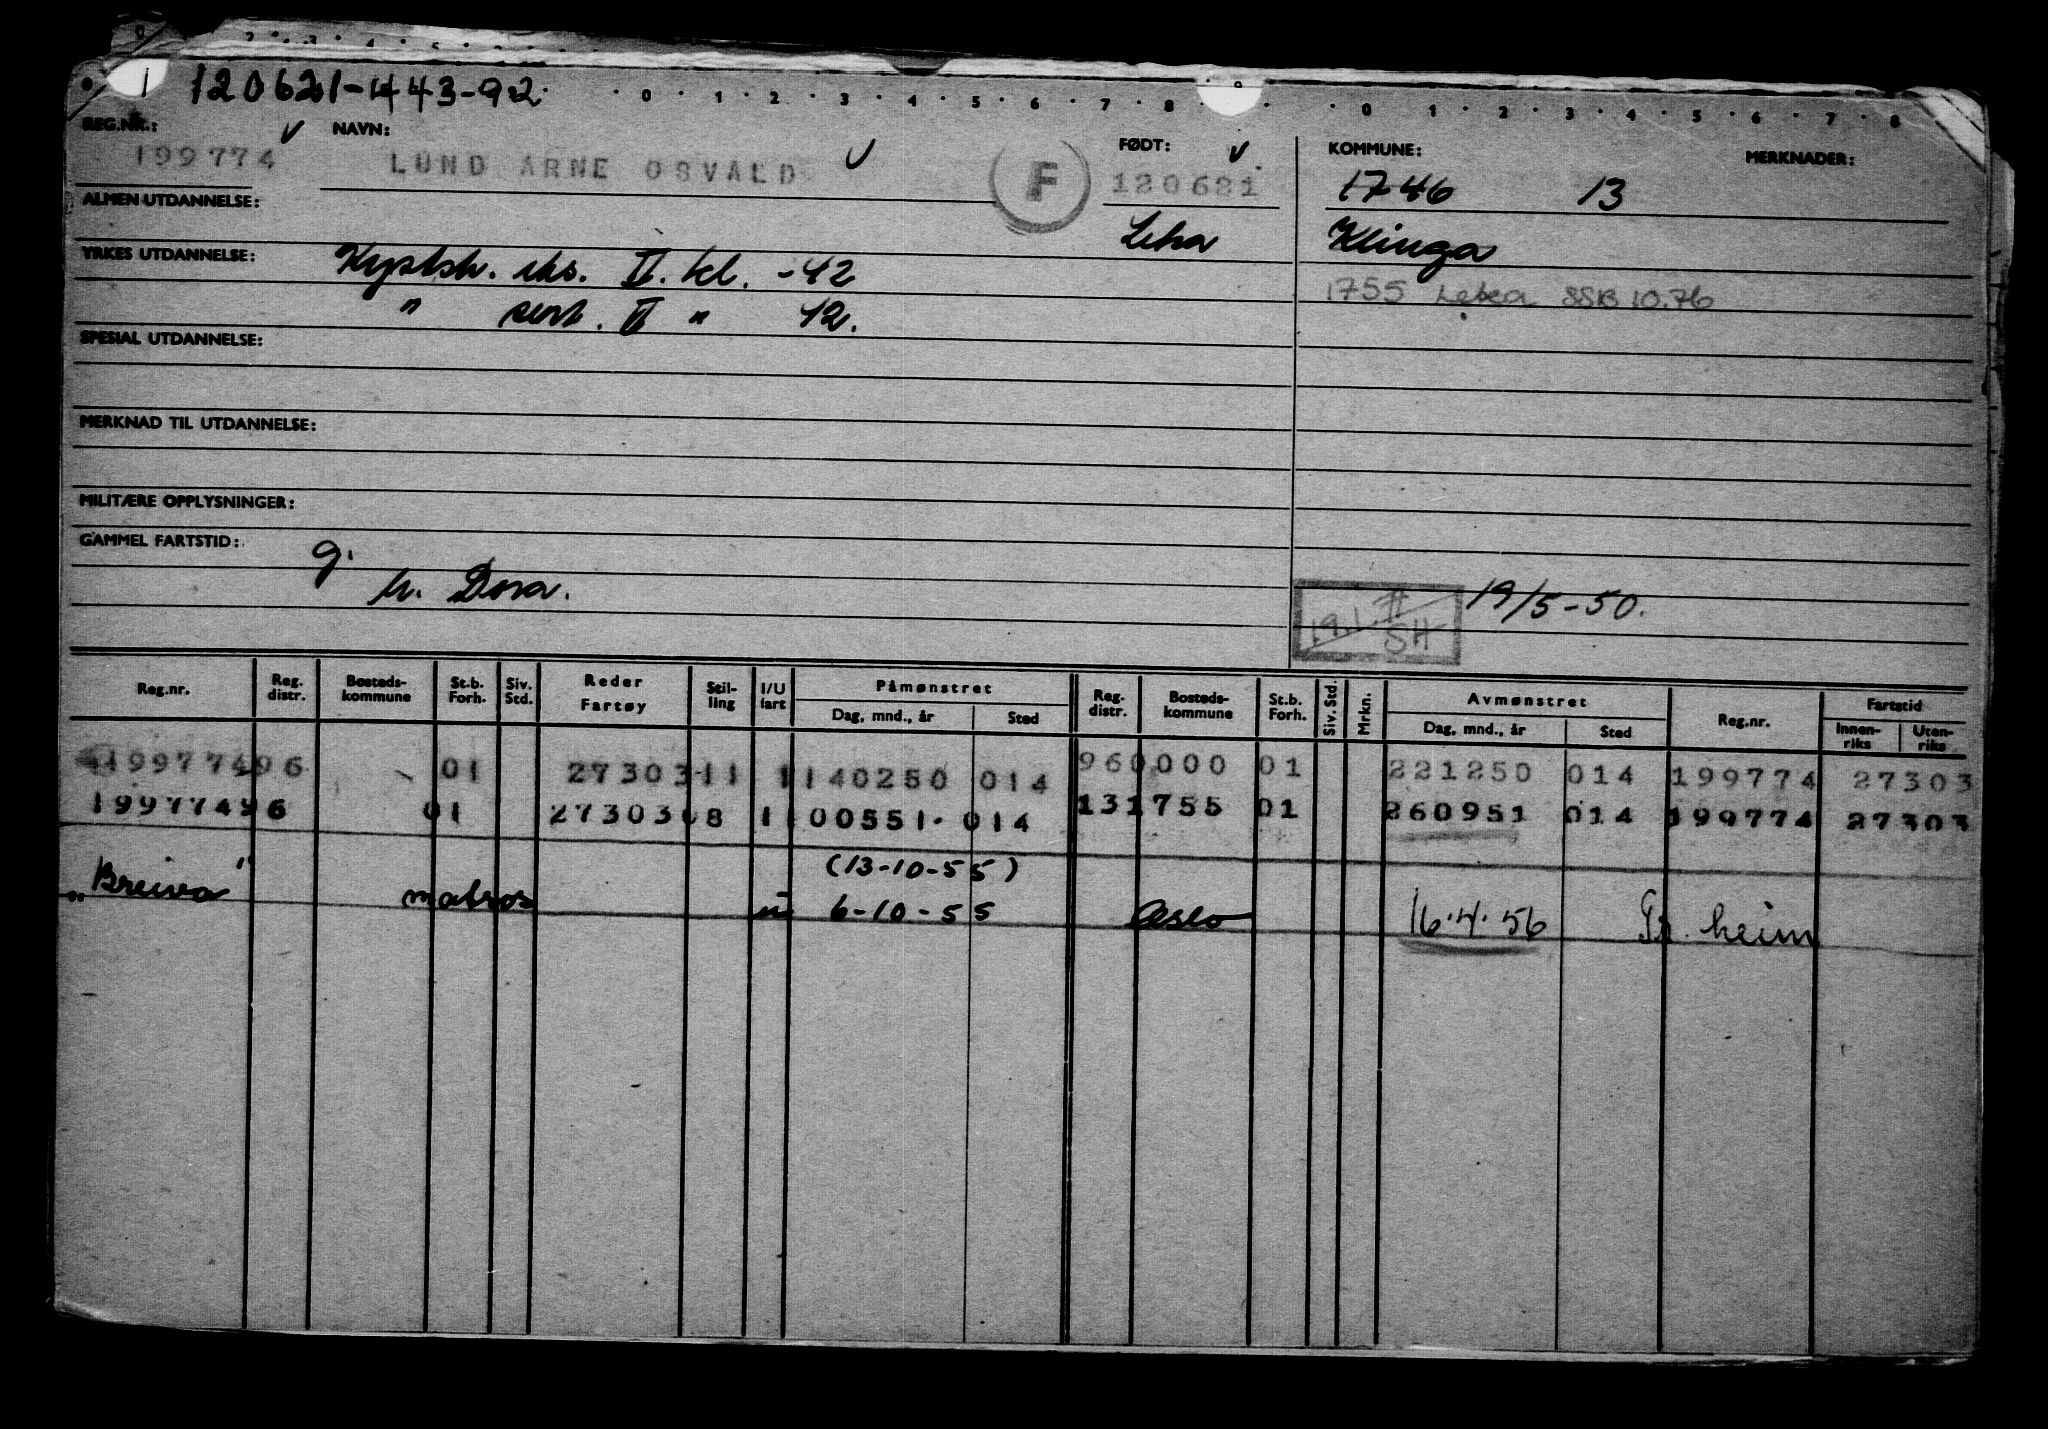 120621-443-92
0 1 2 3 4 5 6 7 8 9 0 1 2 3 4 5 6 7 8
REG.NR.: NAVN: FØDT: KOMMUNE: MERKNADER:
199774 LUND ARNE OSVALD F 120621 1746 13
ALMEN UTDANNELSE: Leka Klinga
YRKES UTDANNELSE: Kystsk. eks. II. kl. -42 1755 Leka SSB 10.76
" sert. II " 42.
SPESIAL UTDANNELSE:
MERKNAD TIL UTDANNELSE:
MILITÆRE OPPLYSNINGER:
GAMMEL FARTSTID: g.
h. Dora. 19.1.71 SH 19/5-50.
Reg.nr. Reg. distr. Bosteds-kommune St.b. Forh. Siv. Std. Reder Fartøy Stil-ling I/U fart Påmønstret Dag, mnd., år Sted Reg. distr. Bosteds-kommune St.b. Forh. Siv. Std. Mrkn. Avmønstret Dag, mnd., år Sted Reg.nr. Fartstid Innen-riks Uten-riks
19977496 01 27303 11 1 140250 014 960000 01 221250 014 199774 27303
19977496 01 2730308 1 100551 014 131755 01 260951 014 199774 27303
(13-10-55)
"Breiva" matros u 6-10-55 Oslo 16.4.56 Tr. heim